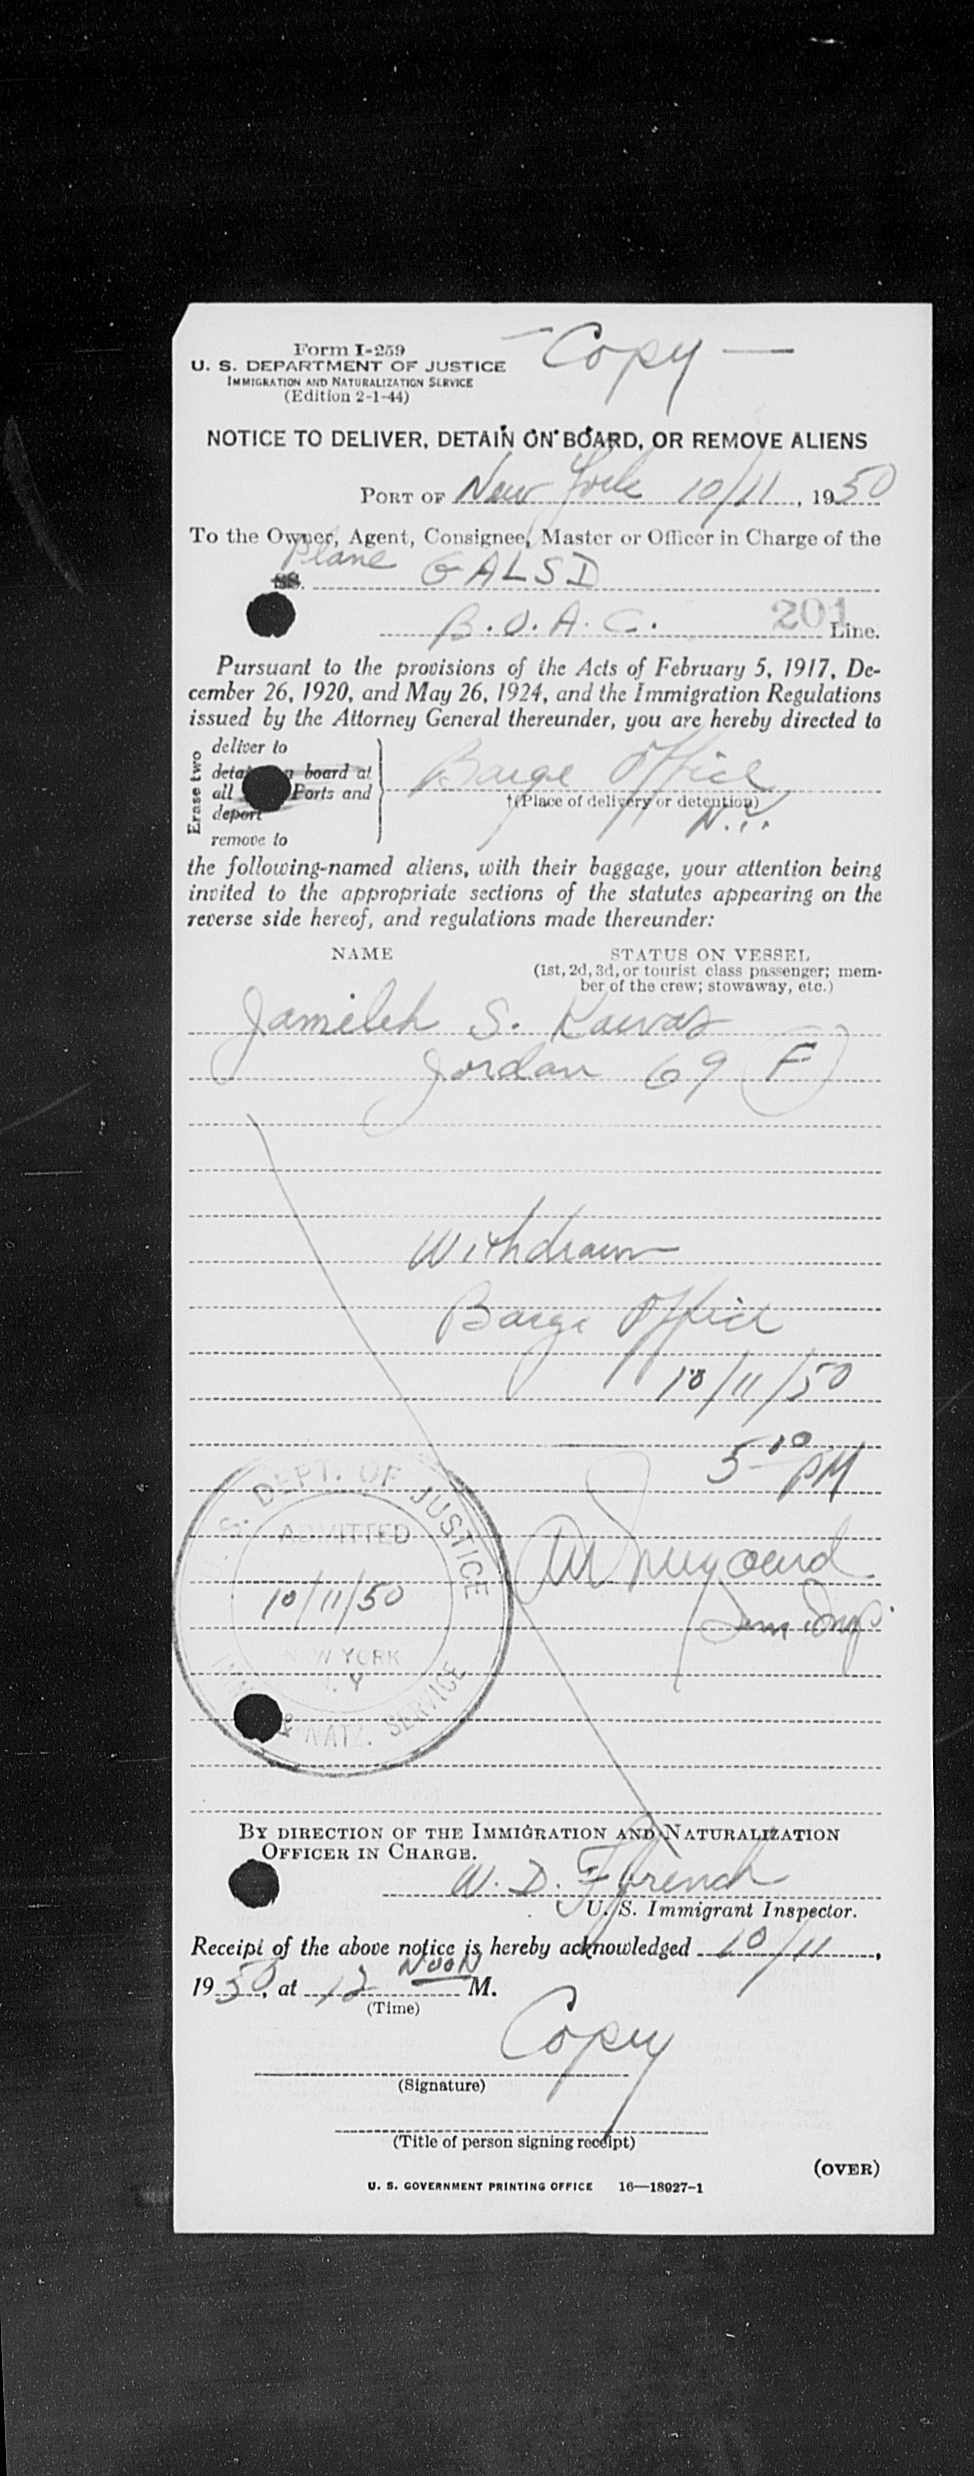 Form I-259
U. S. DEPARTMENT OF JUSTICE
IMMIGRATION AND NATURALIZATION SERVICE
(Edition 2-1-44)
— Copy —
NOTICE TO DELIVER, DETAIN ON BOARD, OR REMOVE ALIENS
PORT OF New York 10/11, 1950
To the Owner, Agent, Consignee, Master or Officer in Charge of the
Plane
SS. GALSI
B.O.A.C. 201 Line.
Pursuant to the provisions of the Acts of February 5, 1917, De-
cember 26, 1920, and May 26, 1924, and the Immigration Regulations
issued by the Attorney General thereunder, you are hereby directed to
Erase two
deliver to
board at
all Ports and
deport
remove to
Barge Office
†(Place of delivery or detention)
N.Y.
the following-named aliens, with their baggage, your attention being
invited to the appropriate sections of the statutes appearing on the
reverse side hereof, and regulations made thereunder:
NAME STATUS ON VESSEL
(1st, 2d, 3d, or tourist class passenger; mem-
ber of the crew; stowaway, etc.)
Jamileh S. Kawas
Jordan 69 (F)
Withdrawn
Barge Office
10/11/50
5 10 PM
U. S. DEPT. OF JUSTICE
ADMITTED
10/11/50
NEW YORK
N.Y.
& NATZ. SERVICE
Imm Insp.
BY DIRECTION OF THE IMMIGRATION AND NATURALIZATION
OFFICER IN CHARGE.
W. D. Ffrench
U. S. Immigrant Inspector.
Receipt of the above notice is hereby acknowledged 10/11,
1950, at 12 NOON M.
(Time)
Copy
(Signature)
(Title of person signing receipt)
(OVER)
U. S. GOVERNMENT PRINTING OFFICE 16—18927-1